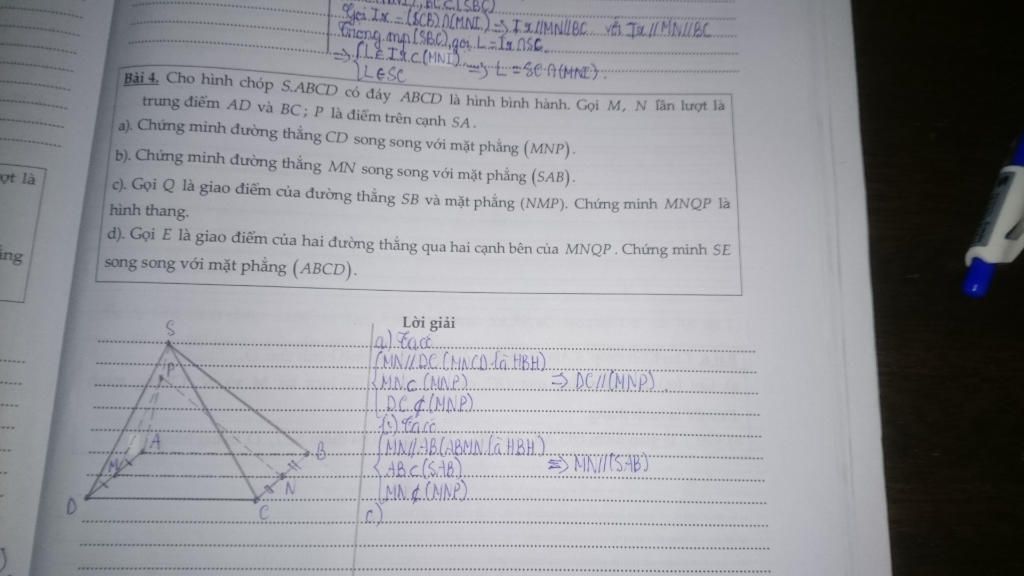 Gọi Ix = (SCB) ∩ (MNI) ⇒ Ix // MN // BC với Ix // MN // BC
Trong mp(SBC), gọi L = Ix ∩ SC
⇒ { L ∈ Ix ⊂ (MNI)
L ∈ SC ⇒ L = SC ∩ (MNI).
Bài 4. Cho hình chóp S.ABCD có đáy ABCD là hình bình hành. Gọi M, N lần lượt là
trung điểm AD và BC; P là điểm trên cạnh SA.
a). Chứng minh đường thẳng CD song song với mặt phẳng (MNP).
b). Chứng minh đường thẳng MN song song với mặt phẳng (SAB).
c). Gọi Q là giao điểm của đường thẳng SB và mặt phẳng (NMP). Chứng minh MNQP là
hình thang.
d). Gọi E là giao điểm của hai đường thẳng qua hai cạnh bên của MNQP. Chứng minh SE
song song với mặt phẳng (ABCD).
ợt là
Lời giải
S
P
A
B
M
N
D
C
a) Ta có
MN // DC (MNCD là HBH)
MN ⊂ (MNP) ⇒ DC // (MNP)
DC ⊄ (MNP)
b) Ta có
MN // AB (ABMN là HBH)
AB ⊂ (SAB) ⇒ MN // (SAB)
MN ⊄ (MNP)
c)